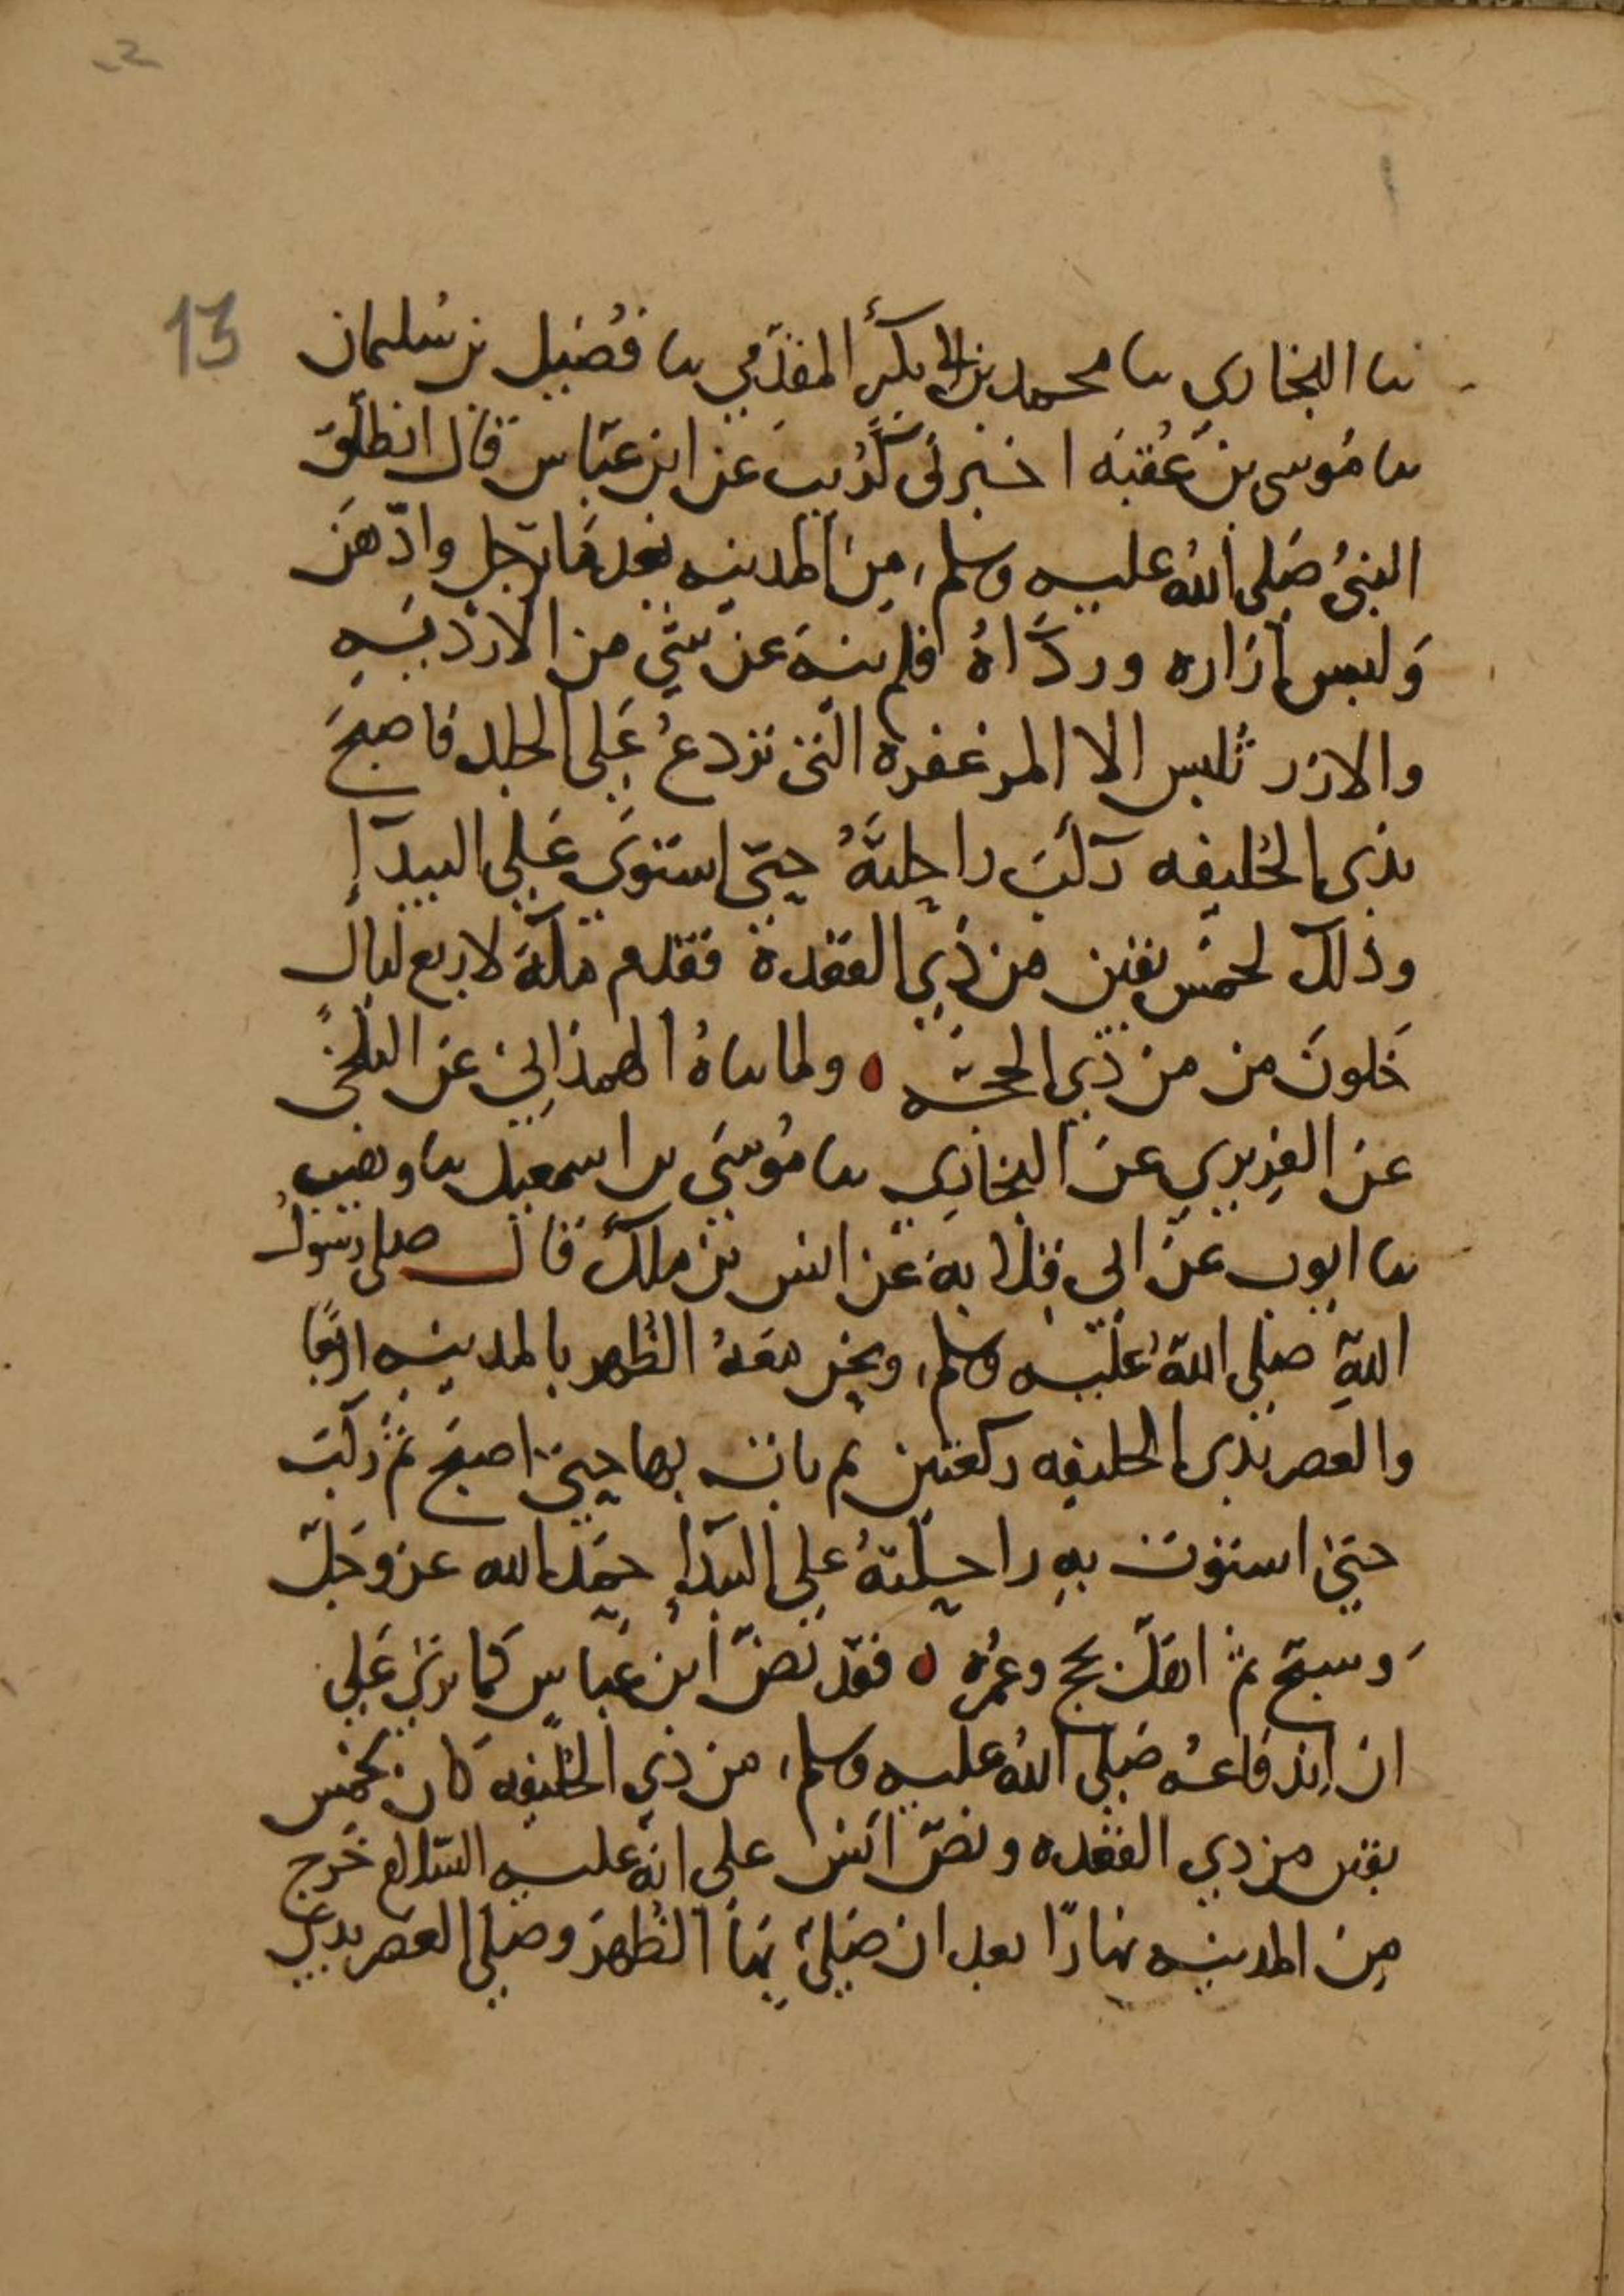 13
ثنا البخاري ثنا محمد بن ابي بكر المقدّمي ثنا فُضيل بن سُليمان
ثنا مُوسى بن عُقبَه اخبرني كُرَيب عن ابن عبّاس قال انطلَق
النبيُ صَلى اللهُ عليه وسلم، مِن المدينه بعد مَا ترجل وادّهَن
وَلبس إزاره وردَاهُ فلم ينهَ عن شيٍ من الارديَهِ
والازر تُلبس الا المزعفرة التي تردعُ عَلى الجلد فاصبحَ
بذى الحُليفه رَكبَ راحِلتَهُ حتى استوَى عَلى البيدآإ
وذلك لخمس بقين من ذي القعدة فقدم مكّةَ لاربع ليال
خَلونَ من من ذي الحجّه ٥ ولما ثناهُ الهمذاني عَن البلخي
عن الفِربري عن البخاري ثنا مُوسَى بن اسمعيل ثنا وهيب
ثنا ايوب عن ابي قلابه عن انس بن ملك قال صلى رسولُ
اللهِ صلى اللهُ عليه وسلم، ونحن معَهُ الظُهر بالمدينه اربعًا
والعصر بذى الحليفه ركعتين ثم بات بها حتى اصبَح ثمّ ركبَ
حتى استوت بهِ راحلتهُ على البيدآإ حمَد الله عز وجلّ
وَسبّح ثمّ اهَلّ بحج وعُمرَه ٥ فقد نصّ ابن عَباسٍ كما ترى عَلى
ان اندفاعه صَلى اللهُ عليه وسلم، من ذي الحُليفه كان لخمس
بقين من ذي القعده ونصّ انَس على انّهُ عليه السّلام خَرج
مِن المدينه نهارًا بعد ان صَلى بَهَا الظُهرَ وصَلى العَصر بذى